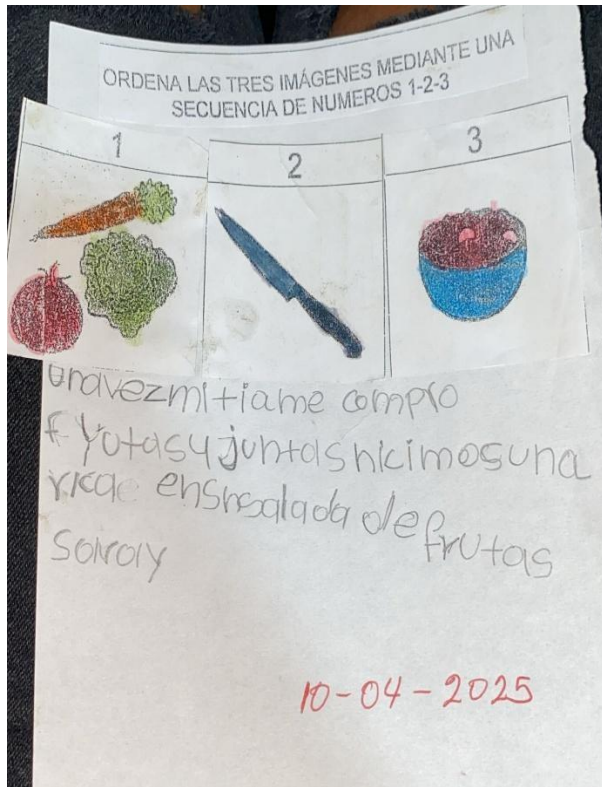 ORDENA LAS TRES IMÁGENES MEDIANTE UNA
SECUENCIA DE NUMEROS 1-2-3
1 2 3
unavezmitiame compro
frutasy juntashicimosuna
rica ensnsalada de frutas
10-04-2025